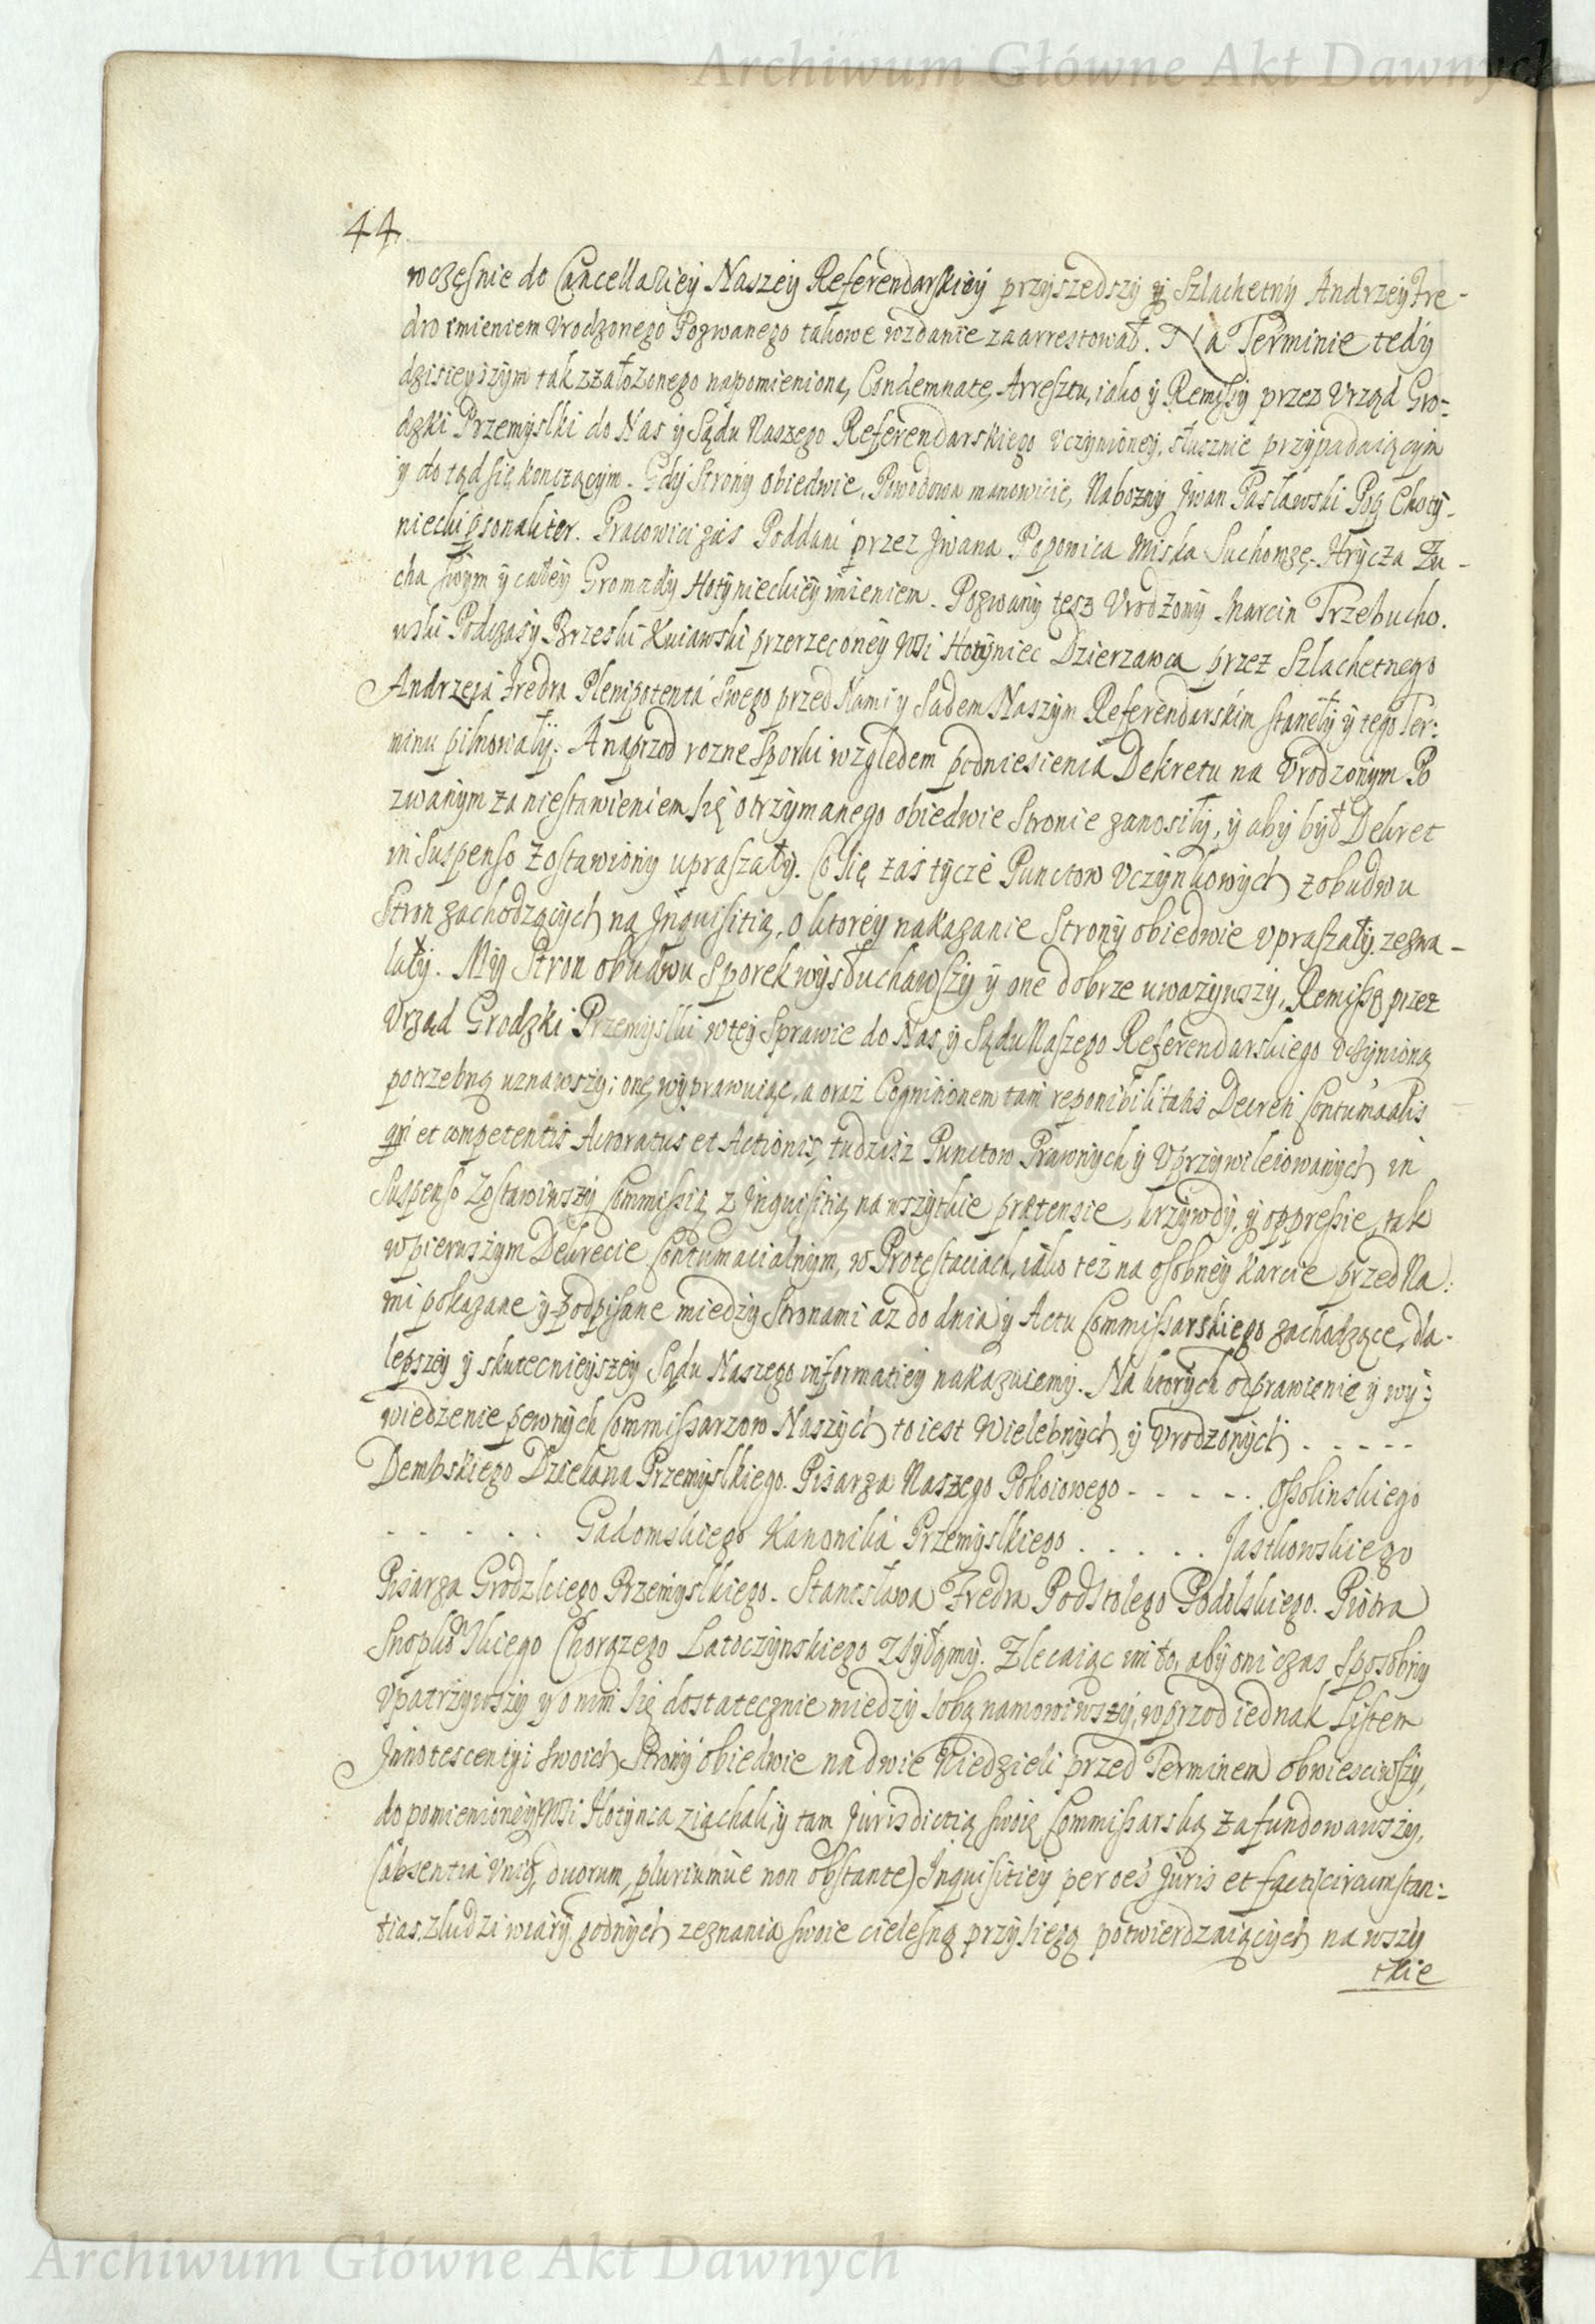 Archiwum Główne Akt Dawnych
44
wczęsnie do Cancellariey Naszey Referendarskiey przyszedszy y Szlachetny Andrzey Fre-
dro imieniem Vrodzonego Pozwanego takowe wzdanie zaarrestował. Na Terminie tedy
dzisieyszym tak z założonego napomienioną Condemnatę Arresztu, iako y Remissy przez Vrząd Gro-
dzki Przemyslki do Nas y Sądu Naszego Referendarskiego vczynioney, słusznie przypadaiącym
y do tąd się konczącym. Gdy Strony obiedwie, Powodowa manowicie, Nabozny Jwan Pasławski Pop Choty-
niecki psonaliter. Pracowici zás Poddani przez Jwana Popowica Miska Suchonzę, Hrycza Zu-
cha swym y całey Gromady Hotynieckiey imieniem. Pozwany tesz Vrodzony Marcin Trzebucho-
wski Podczaszy Brzeski Kuiawski przerzeconey Wsi Hotyniec Dzierzawca przez Szlachetnego
Andrzeia Fredra Plenipotenta swego przed Nami y Sądem Naszym Referendarskim stanęły y tego Ter-
minu pilnowały. A naprzod rozne sporki względem podniesienia Dekretu na Vrodzonym Po
zwanym za niestawieniem się otrzymanego obiedwie Stronie zanosiły, y aby był Dekret
in Suspenso zostawiony upraszały. Co się zas tycze Punctow Vczynkowych z obudwu
Stron zachodzących na Jnquisitią, o ktorey nakazanie Strony obiedwie vpraszały, zezwa-
lały. My Stron obudwu Sporek wysłuchawszy y one dobrze uwazywszy, Remissę przez
Vrząd Grodzki Przemyslki w tey Sprawie do Nas y Sądu Naszego Referendarskiego vczynioną
potrzebną uznawszy, onę wyprawuiąc, a oraz Cognitionem tam reponibilitatis Decreti Contumatialis
qm et competentis Actoratus et Actionis, tudziesz Punctow Prawnych y Vprzywileiowanych in
Suspenso zostawiwszy Commissią z Jnquisitią na wszytkie prætensie, krzywdy, y oppressie, tak
w pierwszym Dekrecie Contumacialnym, w Protestaciach, iako też na osobney karcie przed Na-
mi pokazane y podpisane miedzy Stronami az do dnia y Actu Commissarskiego zachodzące, dla
lepszey y skutecznieyszey Sądu Naszego informatiey nakazuiemy. Na ktorych odprawienie y wy-
wiedzenie pewnych Commissarzow Naszych to iest Wielebnych y Vrodzonych . . . . .
Dembskiego Dziekana Przemyslkiego. Pisarza Naszego Pokoiowego - - - - - Ossolinskiego
- - - - - Gadomskiego Kanonika Przemyslkiego . . . . . Jastkowskiego
Pisarza Grodzkiego Przemyslkiego. Stanisława Fredra Podstolego Podolskiego. Piotra
Snopkowskiego Chorązego Latoczynskiego zsyłamy. Zlecaiąc im to, aby oni czas sposobny
vpatrzywszy y o nim się dostatecznie miedzy sobą namowiwszy, wprzod iednak Listem
Jnnotescentyi swoich Strony obiedwie na dwie Niedzieli przed Terminem obwiesciwszy,
do pomienioney Wsi Hotynca ziachali, y tam Jurisdictią swoię Commissarską zafundowawszy,
(absentia vnius, duorum, pluriumue non obstante) Jnquisitiey per oes Juris et facti circumstan-
tias, z ludzi wiary godnych zeznania swoie cielesną przysięgą potwierdzaiących na wszy
tkie
Archiwum Główne Akt Dawnych